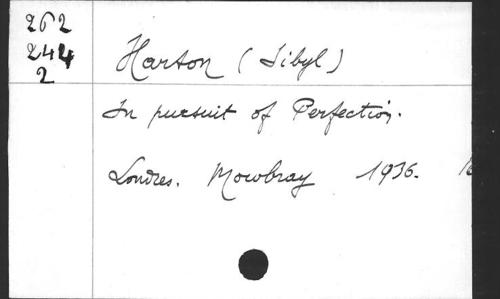 262
244
2
Harton (Sibyl)
In pursuit of Perfection.
Londres. Mowbray 1936.